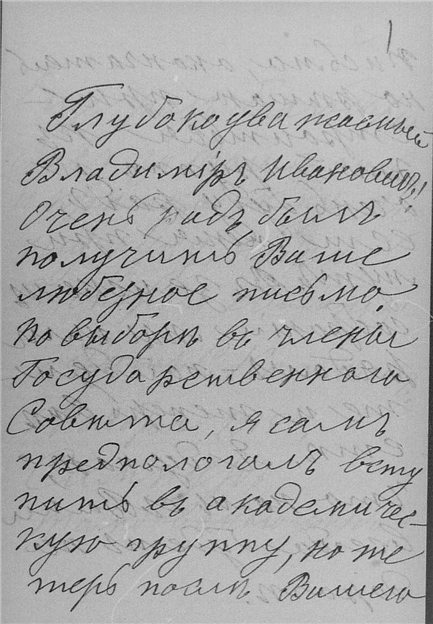 1
Глубокоуважаемый
Владиміръ Ивановичъ!
Очень радъ былъ
получить Ваше
любезное письмо,
по выборѣ въ члены
Государственнаго
Совѣта, я самъ
предпологалъ всту
пить въ академичес-
кую группу, но те
перь послѣ Вашего